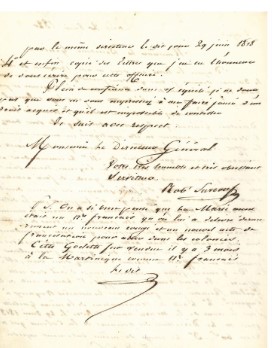 par le même directeur le dit jour 29 juin 1818
4° et enfin copie des lettres que j'ai eu l'honneur
de vous écrire pour cette affaire.
Plein de confiance dans et équité je ne doute
pas que vous ne vous empressiez à me faire jouir d'un
droit acquis et qu'il est impossible de contester
Je suis avec respect
Monsieur le Directeur Général
Votre très humble et très obéissant
Serviteur
Robt Surcouf
P.S. On a dit que la Marie
était un Nre français qu'on lui a délivré
un nouveau congé et un nouvel acte de
francisation pour aller dans les colonies.
Cette Goelette fut vendue il y a 3 mois
à la Martinique comme Nre français
le dit